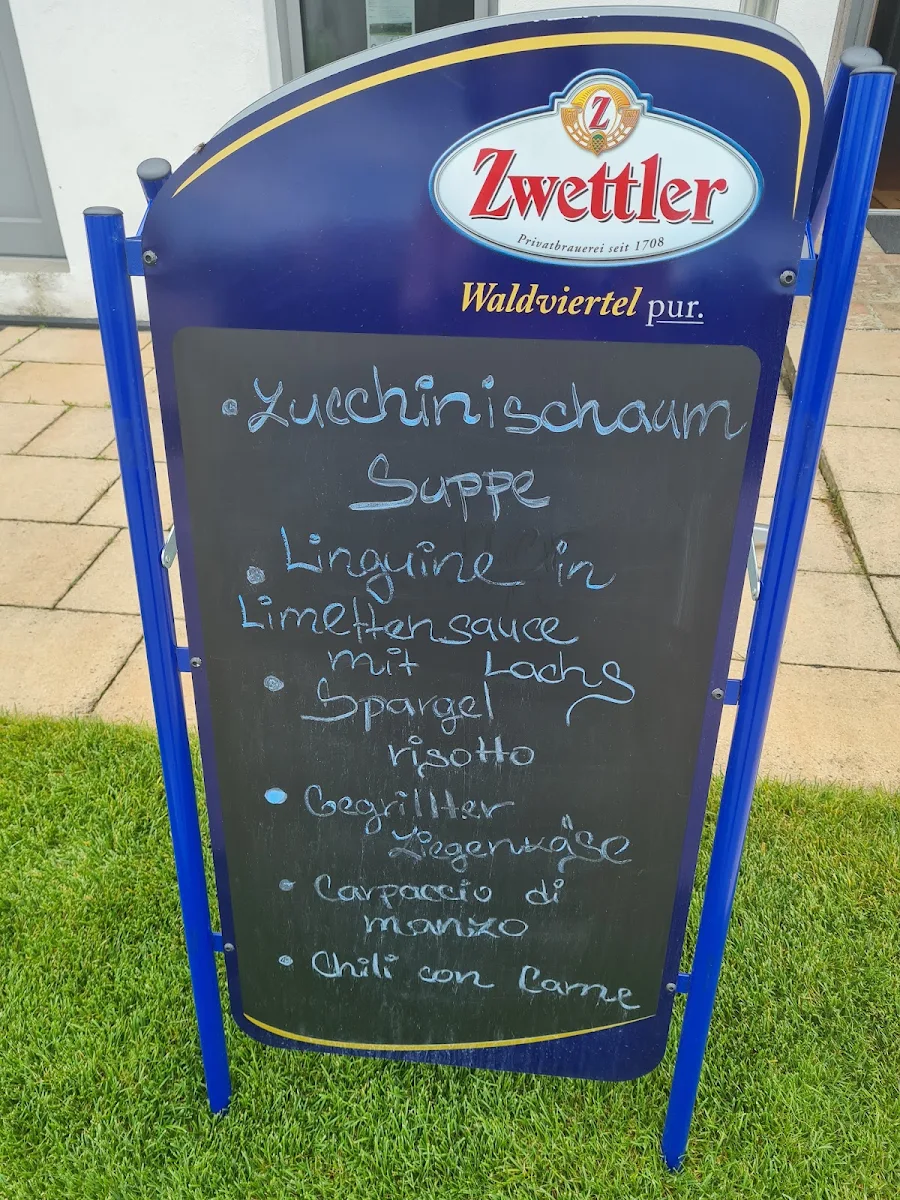 Z
Zwettler
Privatbrauerei seit 1708
Waldviertel pur.
• Zucchinischaum
Suppe
• Linguine in
Limettensauce
mit Lachs
• Spargel
risotto
• Gegrillter
Ziegenkäse
• Carpaccio di
manzo
• Chili con Carne